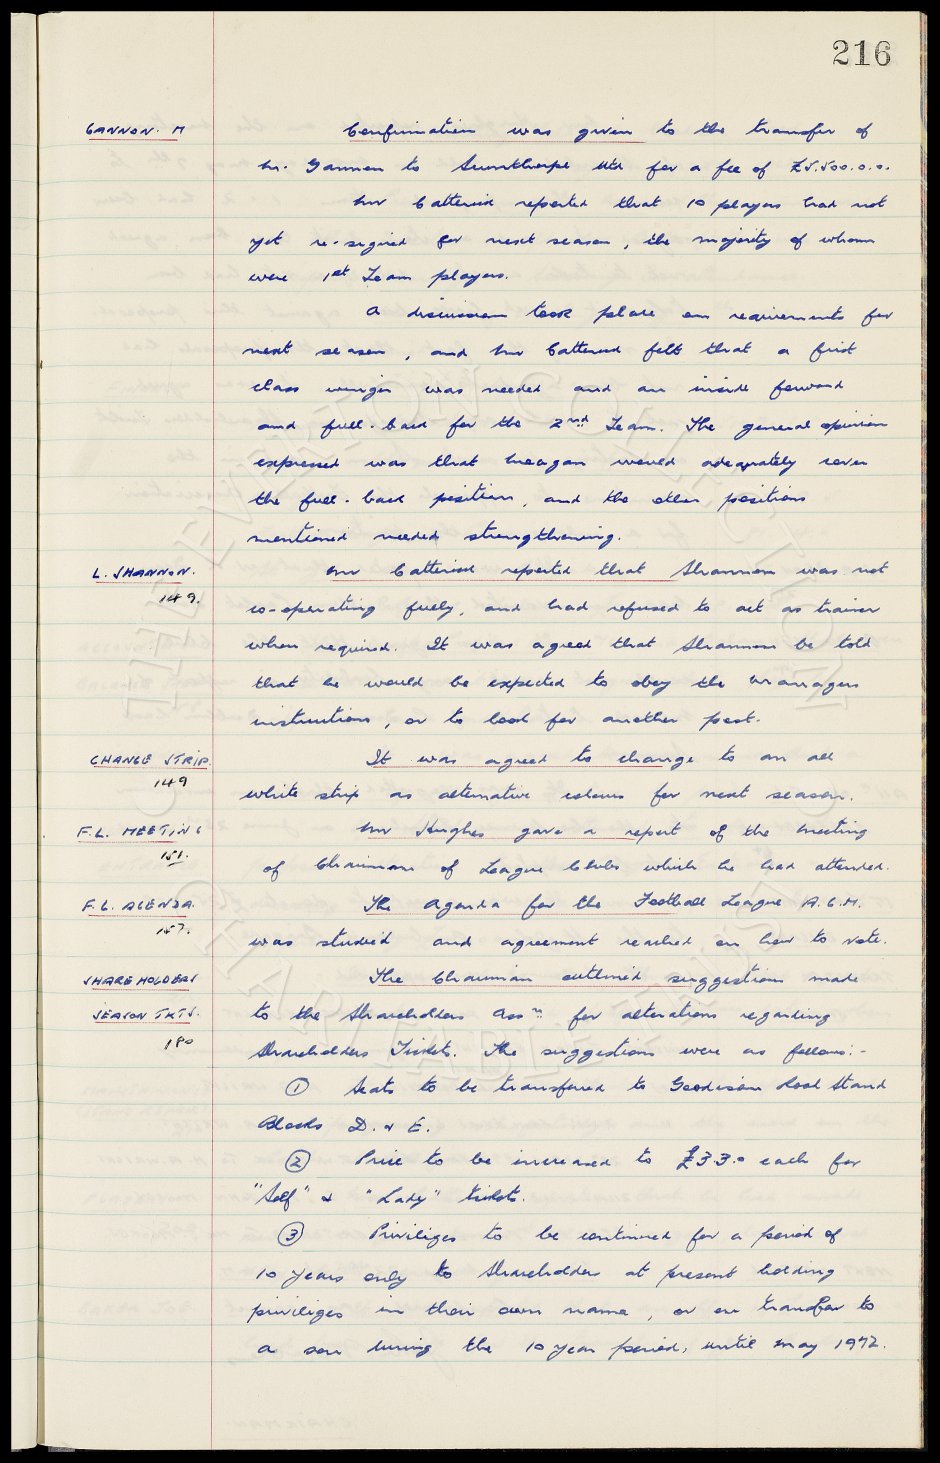 216
GANNON. M
Confirmation was given to the transfer of
Mr. Gannon to Scunthorpe Utd for a fee of £5.500.0.0.
Mr Catterick reported that 10 players had not
yet re-signed for next season, the majority of whom
were 1st Team players.
A discussion took place on requirements for
next season, and Mr Catterick felt that a first
class winger was needed and an inside forward
and full-back for the 2nd Team. The general opinion
expressed was that Meagan would adequately cover
the full-back position, and the other positions
mentioned needed strengthening.
L. SHANNON.
149.
Mr Catterick reported that Shannon was not
co-operating fully, and had refused to act as trainer
when required. It was agreed that Shannon be told
that he would be expected to obey the Managers
instructions, or to look for another post.
CHANGE STRIP
149
It was agreed to change to an all
white strip as alternative colours for next season.
F.L. MEETING
151.
Mr Hughes gave a report of the meeting
of Chairmen of League Clubs which he had attended.
F.L. AGENDA
157.
The Agenda for the Football League A.G.M.
was studied and agreement reached on how to vote.
SHAREHOLDERS
SEASON TKTS.
180
The Chairman outlined suggestions made
to the Shareholders Assn for alterations regarding
Shareholders Tickets. The suggestions were as follows:-
① Seats to be transfered to Goodison Road Stand
Blocks D. & E.
② Price to be increased to £3.3.0 each for
"Self" & "Lady" tickets.
③ Priviliges to be continued for a period of
10 years only to Shareholders at present holding
priviliges in their own name, or on transfer to
a son during the 10 year period, until May 1972.